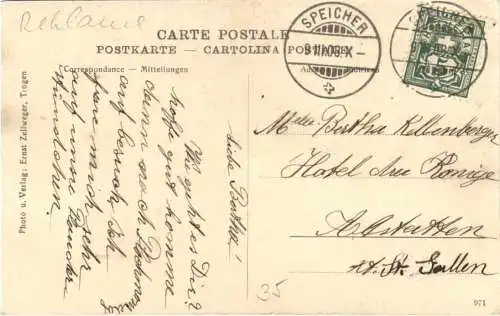 Reklame
CARTE POSTALE
POSTKARTE – CARTOLINA POSTALE
Correspondance — Mitteilungen
SPEICHER
9.III.08.X–
SPEICHER
Photo u. Verlag: Ernst Zellweger, Trogen
Liebe Bertha!
Wie geht es Dir?
hoffe gut komme
dann nach Rohner
auf besuch, bet
freue mich sehr
auf unser
stündchen.
Melle Bertha Kellenberger
Hotel drei Könige
Altstätten
Kt. St. Gallen
35
971